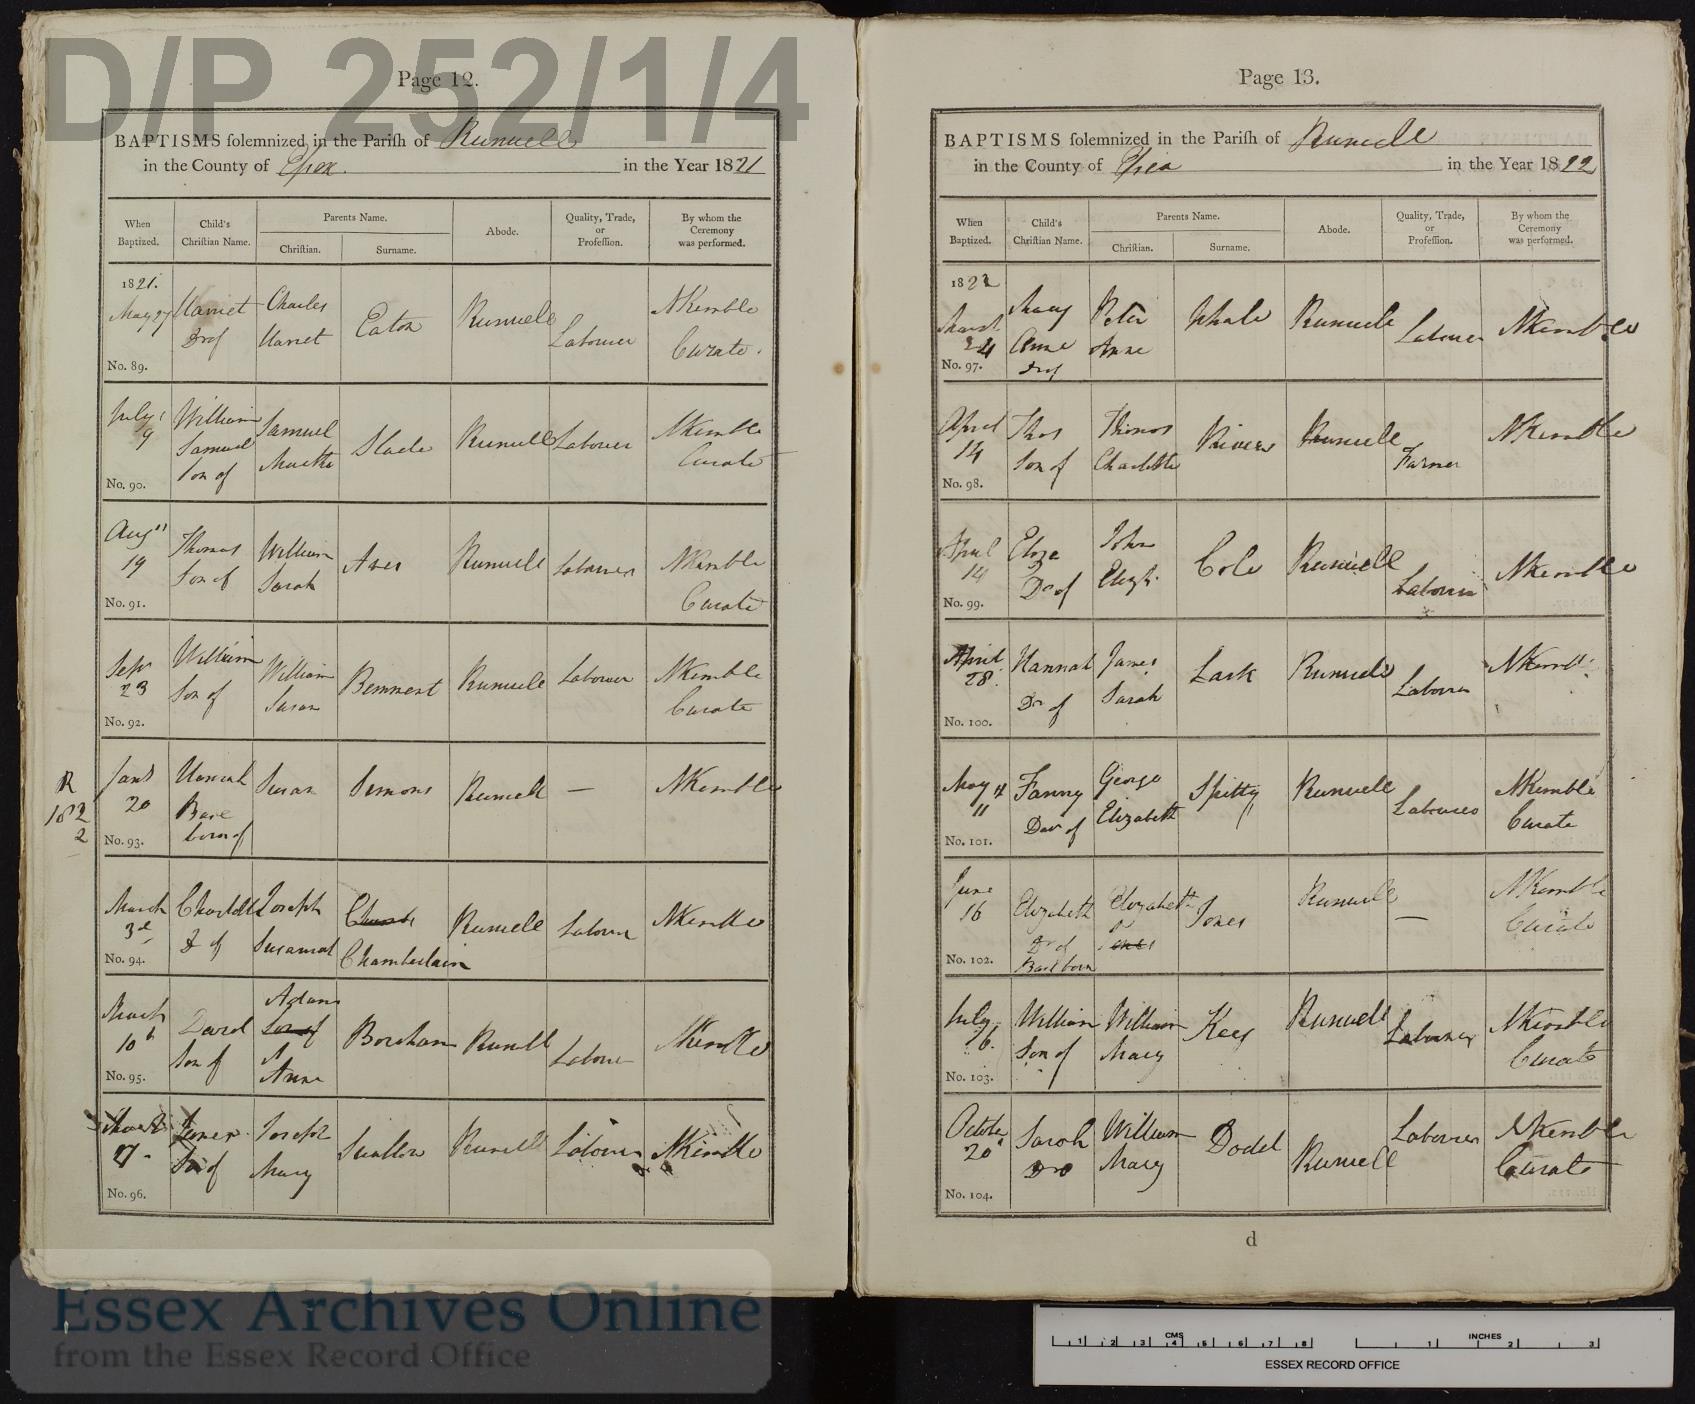 D/P 252/1/4
Page 12.
BAPTISMS solemnized in the Parish of Runwell
in the County of Essex. in the Year 1821
When Baptized.
Child's Christian Name.
Parents Name.
Christian.
Surname.
Abode.
Quality, Trade, or Profession.
By whom the Ceremony was performed.
1821.
May 27
No. 89.
Harriet
Dr of
Charles
Harriet
Eaton
Runwell
Labourer
N Kemble
Curate.
July
9
No. 90.
William
Samuel
Son of
Samuel
Martha
Slade
Runwell
Labourer
N Kemble
Curate
Aug
19
No. 91.
Thomas
Son of
William
Sarah
Runwell
Labourer
N Kemble
Curate
Sepr
23
No. 92.
William
Son of
William
Susan
Runwell
Labourer
N Kemble
Curate
R
182
2
20
No. 93.
Hannah
Base
born of
Susan
Simons
Runwell
—
N Kemble
March
3d
No. 94.
Charlotte
D of
Joseph
Susannah
Chamberlain
Runwell
Labourer
N Kemble
March
10
No. 95.
David
Son of
Adam
Son of
&
Anne
Boreham
Runwell
Labourer
N Kemble
March
27
No. 96.
James
Son of
Joseph
Mary
Swallow
Runwell
Labourer
N Kemble
Page 13.
BAPTISMS solemnized in the Parish of Runwell
in the County of Essex in the Year 1822
When Baptized.
Child's Christian Name.
Parents Name.
Christian.
Surname.
Abode.
Quality, Trade, or Profession.
By whom the Ceremony was performed.
1822
March
24
No. 97.
Mary
Anne
Dr of
Peter
Anne
Whale
Runwell
Labourer
N Kemble
April
14
No. 98.
Thos
Son of
Thomas
Charlotte
Rivers
Runwell
Farmer
N Kemble
April
14
No. 99.
Eliza
Dr of
John
Elizh.
Cole
Runwell
Labourer
N Kemble
April
28
No. 100.
Hannah
Dr of
James
Sarah
Lark
Runwell
Labourer
N Kemble
May
11
No. 101.
Fanny
Daur of
George
Elizabeth
Spitty
Runwell
Labourer
N Kemble
Curate
June
16
No. 102.
Elizabeth
Dr of
Base born
Elizabeth
Jones
Runwell
—
N Kemble
Curate
July
No. 103.
William
Son of
William
Mary
Keey
Runwell
Labourer
N Kemble
Curate
October
20
No. 104.
Sarah
William
Mary
Dodd
Runwell
Labourer
N Kemble
Curate
d
Essex Archives Online
from the Essex Record Office
CMS
1 2 3 4 5 6 7 8
INCHES
1 2 3
ESSEX RECORD OFFICE